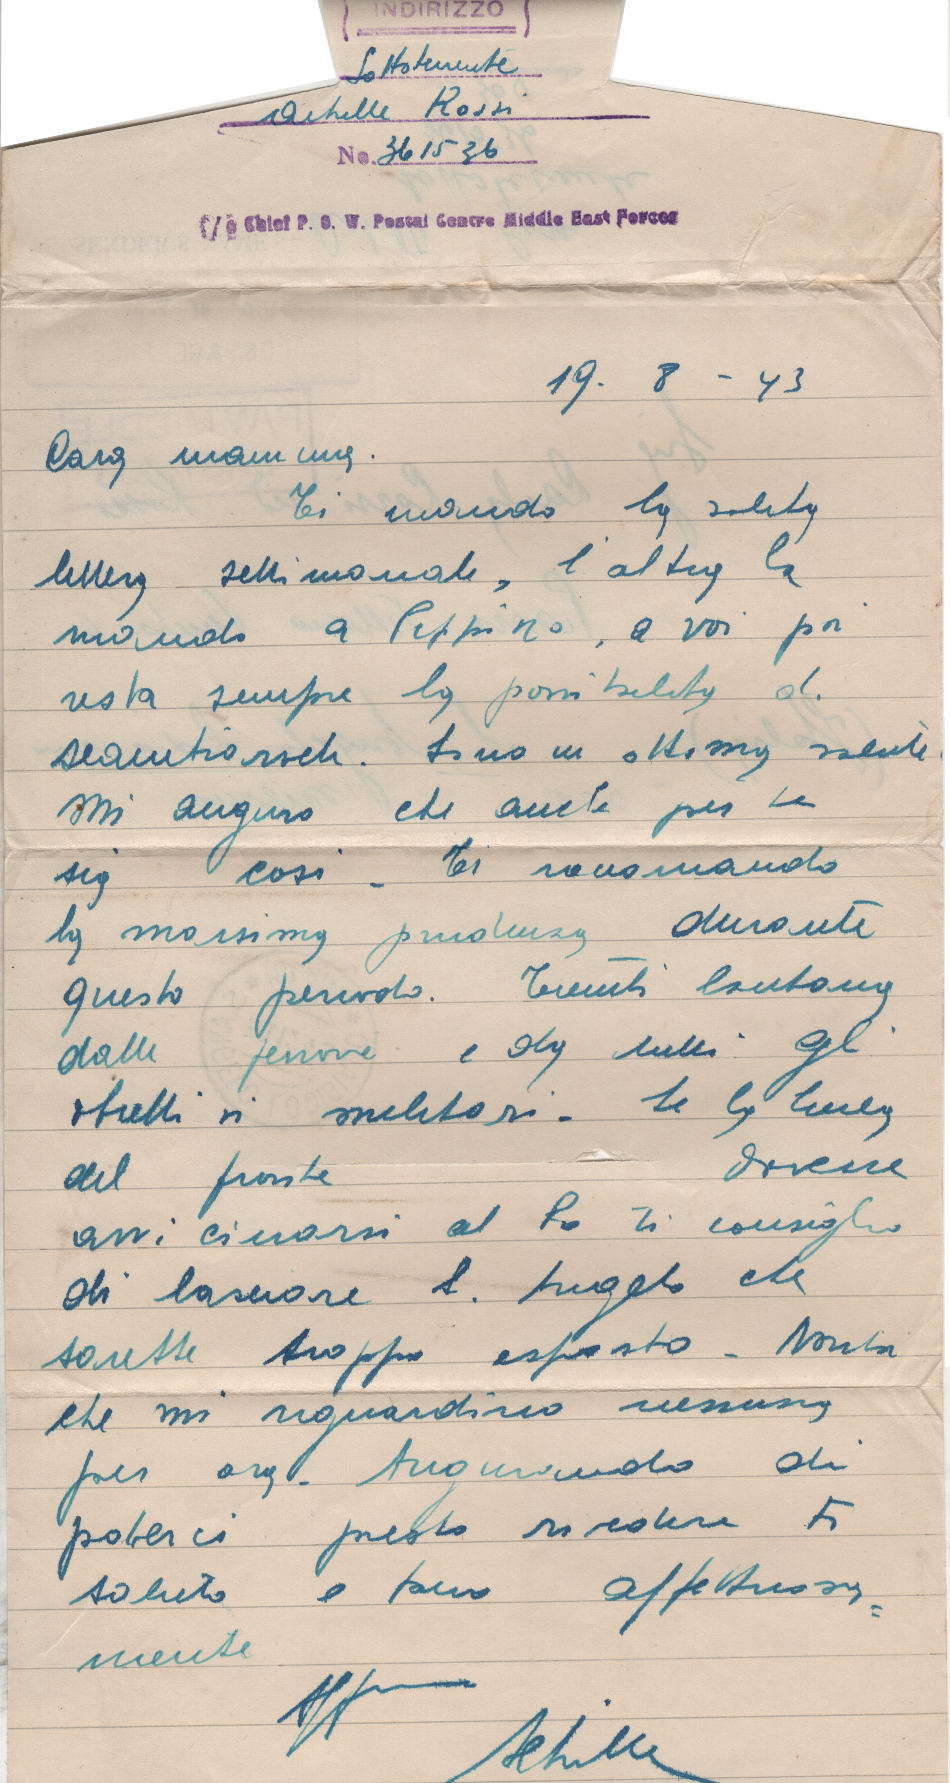 INDIRIZZO
Sottotenente
Achille Rossi
No. 361536
C/o Chief P. O. W. Postal Centre Middle East Forces
19. 8 - 43
Cara mamma.
Ti mando la solita
lettera settimanale, l'altra la
mando a Peppino, a voi poi
resta sempre la possibilità di
scambiarvele. Sono in ottima salute.
Mi auguro che anche per te
sia così - Ti raccomando
la massima prudenza durante
questo periodo. Tieniti lontana
dalle ferrovie e da tutti gli
obiettivi militari. Se la linea
del fronte dovesse
avvicinarsi al Po ti consiglio
di lasciare S. Angelo che
sarebbe troppo esposto - Novità
che mi riguardino nessuna
per ora. Augurando di
poterci presto rivedere ti
saluto e bacio affettuosa=
mente
Achille